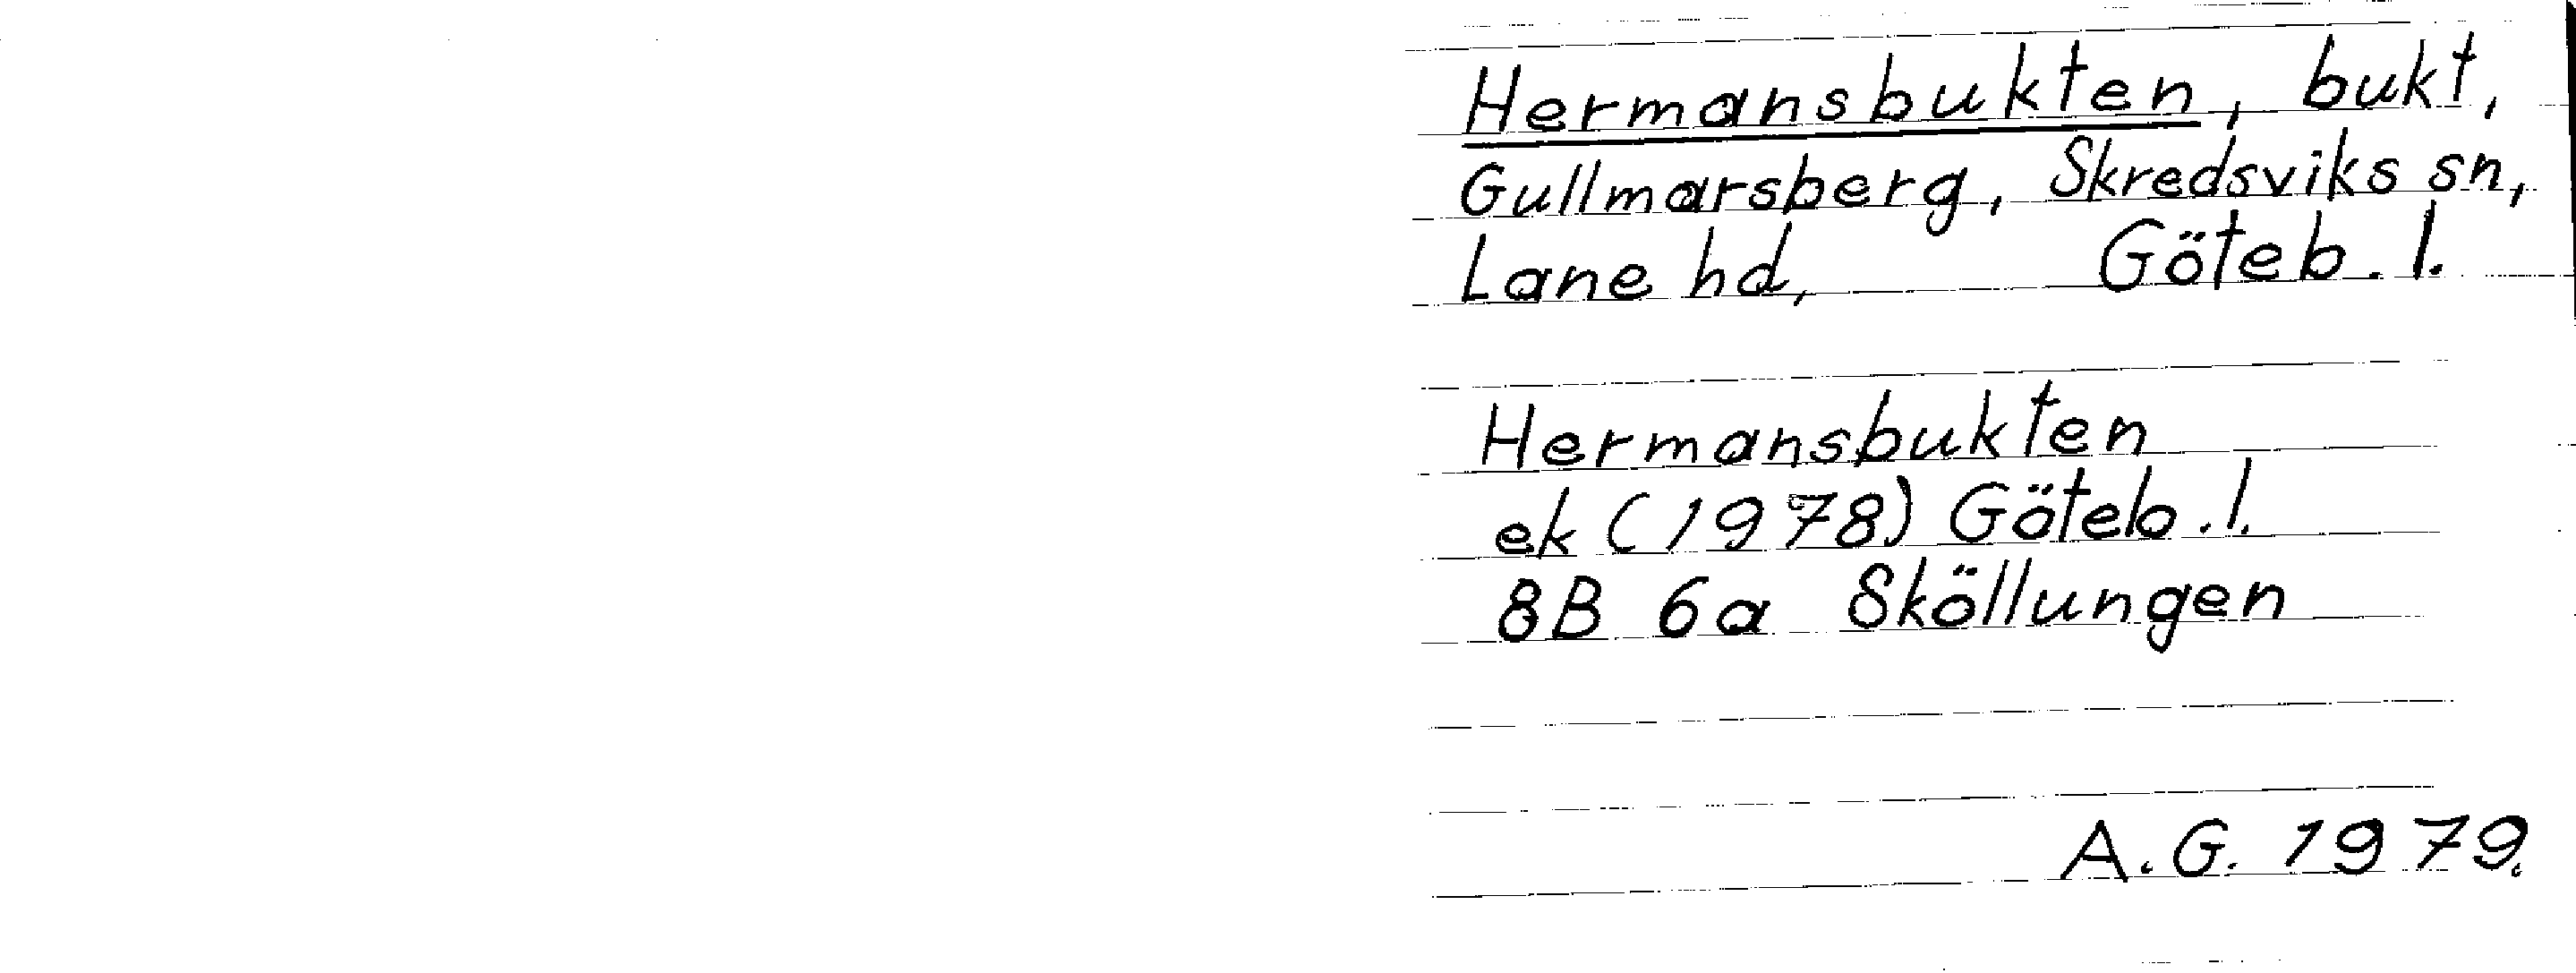 Hermansbukten, bukt,
Gullmarsberg, Skredsviks sn,
Lane hd, Göteb. l.
Hermansbukten
ek (1978) Göteb. l.
8B 6a Sköllungen
A.G. 1979.